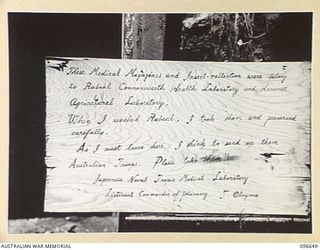 These Medical Magazines and Insect-collection were belong
to Rabaul Commonwealth Health Laboratory and
Agricultural Laboratory.
When I reached Rabaul, I took them and preserved
carefully.
As I must leave here, I think to send up them
Australian Troops. Please take them!!
Japanese Naval Tropic Medical Laboratory
Lieutenant Commander of pharmacy. T.
AUSTRALIAN WAR MEMORIAL
096649